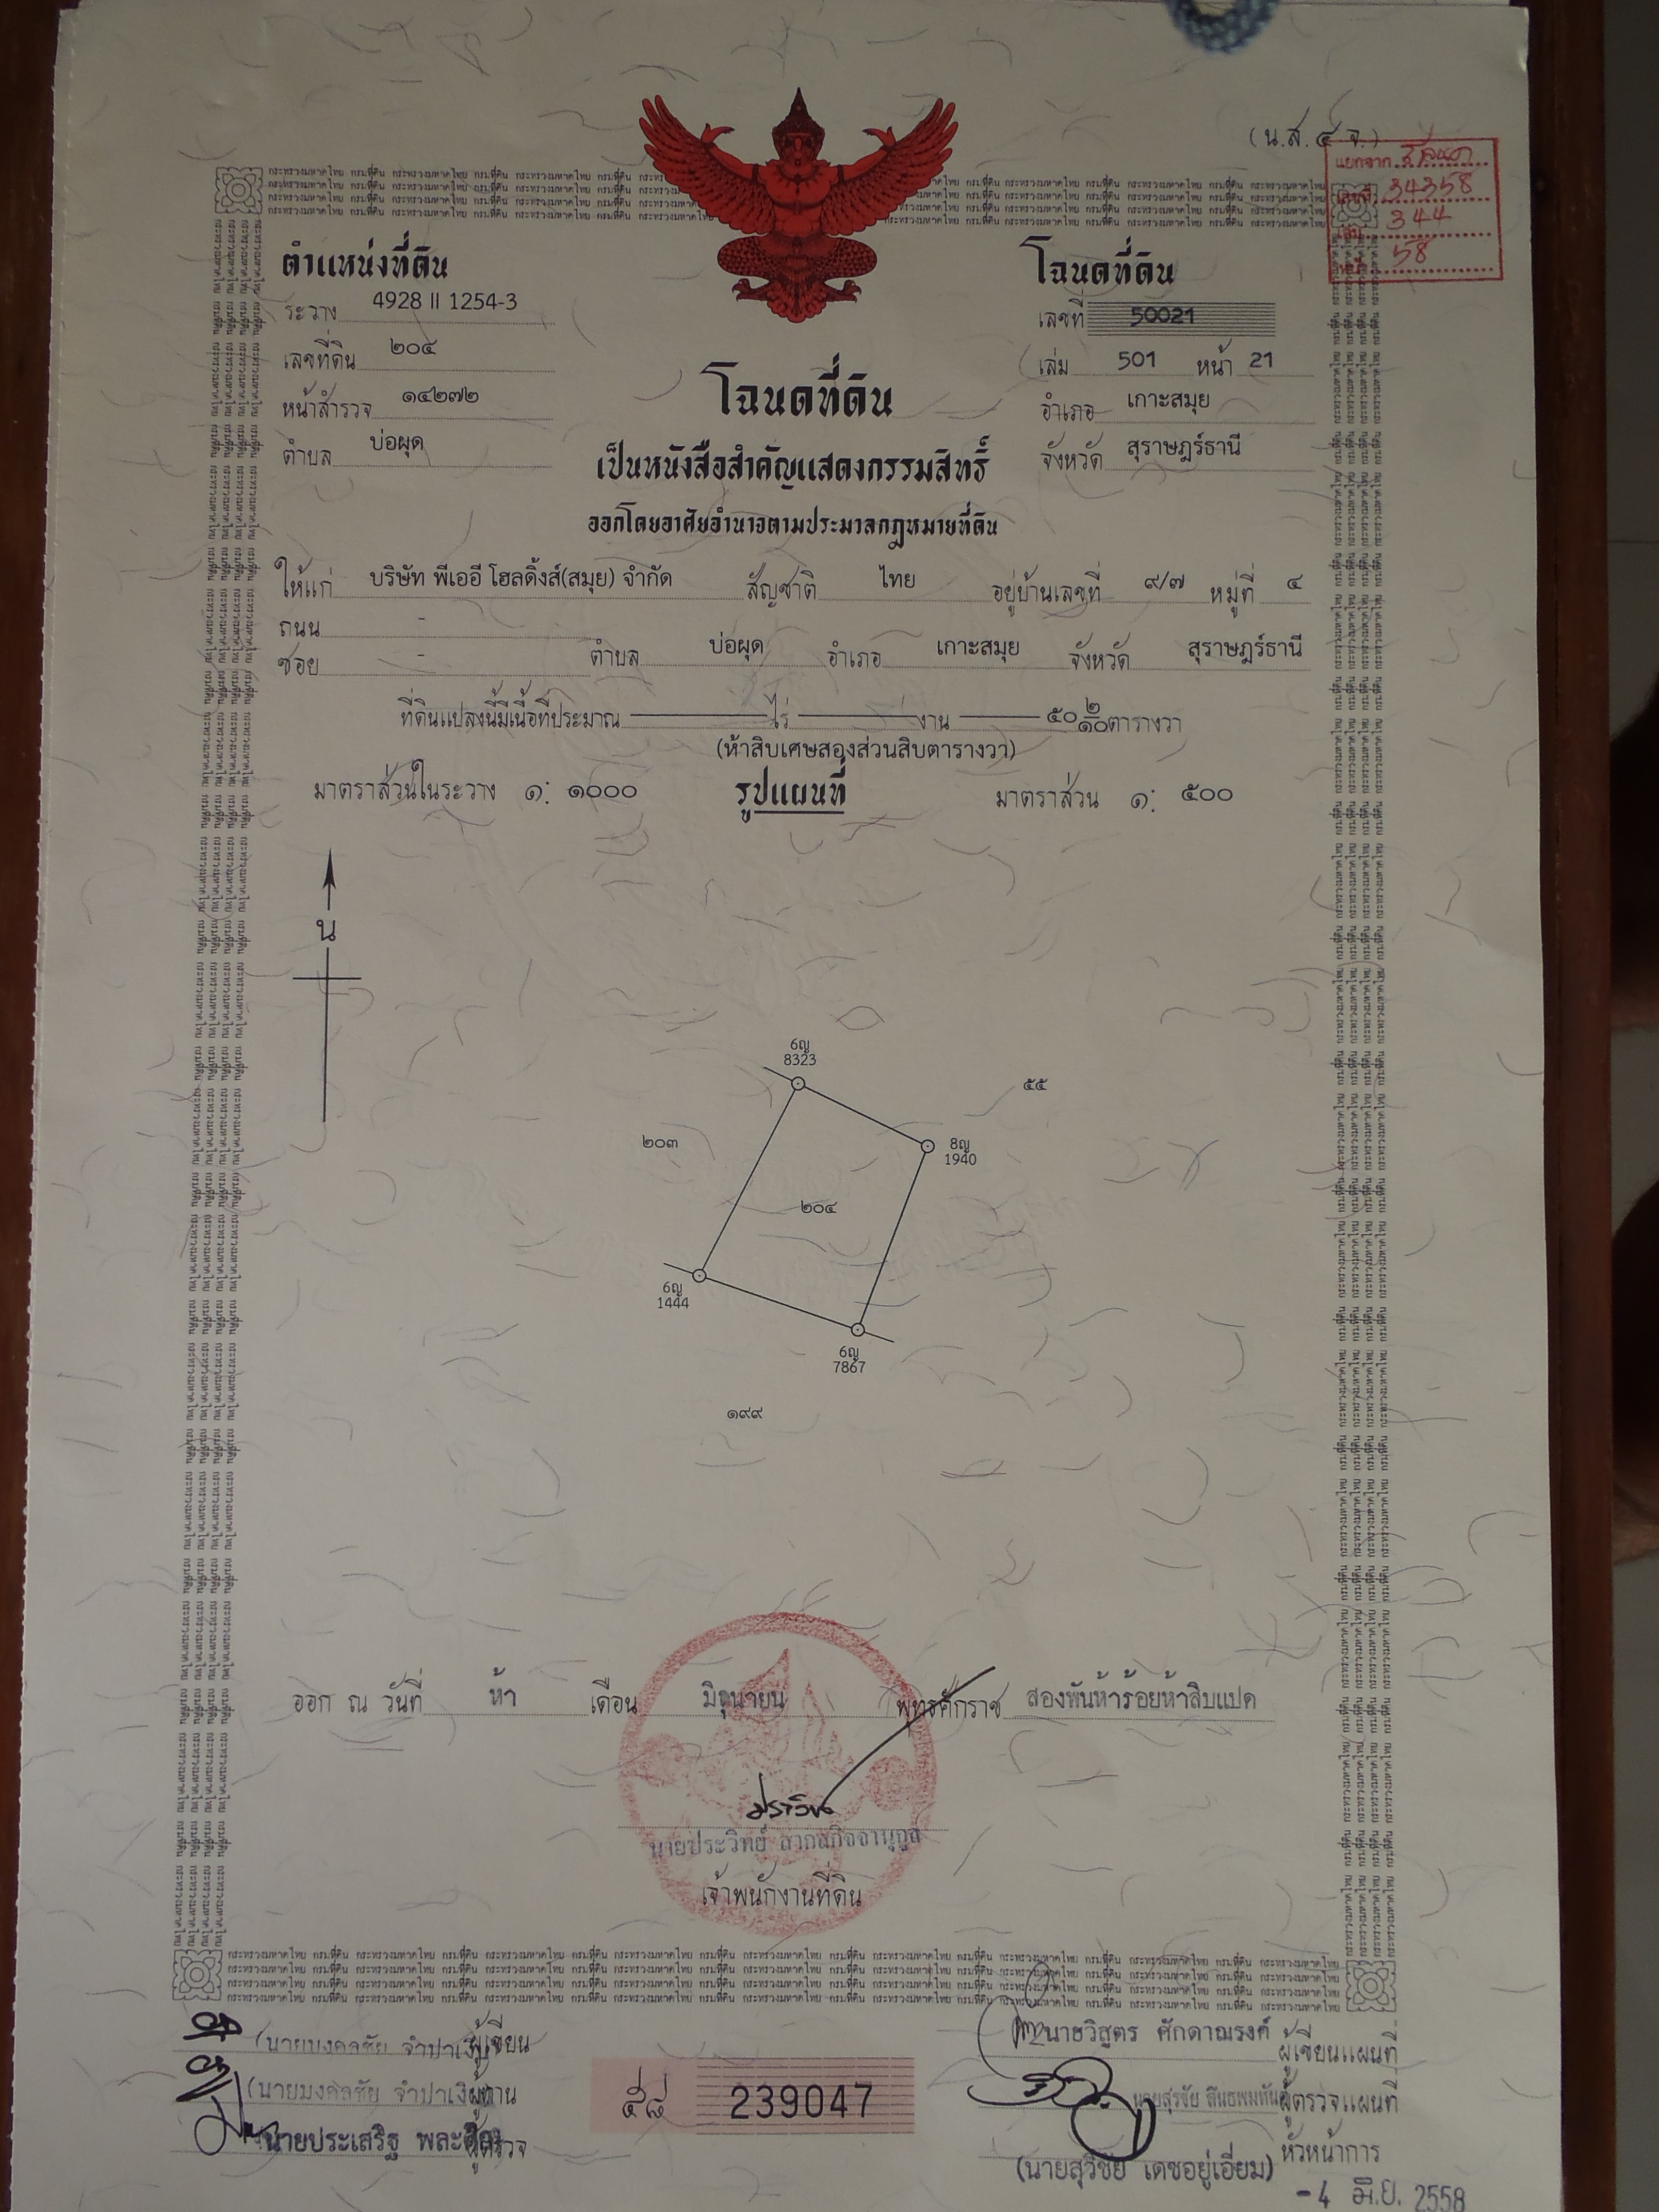 (น.ส.๔ จ.)
แยกจาก โฉนด
34358
344
58
ตำแหน่งที่ดิน
ระวาง 4928 II 1254-3
เลขที่ดิน ๒๐๔
หน้าสำรวจ ๑๔๒๗๒
ตำบล บ่อผุด
โฉนดที่ดิน
เลขที่ 50021
เล่ม 501 หน้า 21
อำเภอ เกาะสมุย
จังหวัด สุราษฎร์ธานี
โฉนดที่ดิน
เป็นหนังสือสำคัญแสดงกรรมสิทธิ์
ออกโดยอาศัยอำนาจตามประมวลกฎหมายที่ดิน
ให้แก่ บริษัท พีเออี โฮลดิ้งส์(สมุย) จำกัด สัญชาติ ไทย อยู่บ้านเลขที่ ๙/๗ หมู่ที่ ๔
ถนน -
ซอย - ตำบล บ่อผุด อำเภอ เกาะสมุย จังหวัด สุราษฎร์ธานี
ที่ดินแปลงนี้มีเนื้อที่ประมาณ ไร่ งาน ๕๐ ๒/๑๐ ตารางวา
(ห้าสิบเศษสองส่วนสิบตารางวา)
มาตราส่วนในระวาง ๑: ๑๐๐๐ รูปแผนที่ มาตราส่วน ๑: ๕๐๐
น
6ญ
8323
๕๕
๒๐๓
8ญ
1940
๒๐๔
6ญ
1444
6ญ
7867
๑๙๙
ออก ณ วันที่ ห้า เดือน มิถุนายน พุทธศักราช สองพันห้าร้อยห้าสิบแปด
เจ้าพนักงานที่ดิน
(นายมงคลชัย จำปาเงิน) ผู้เขียน
(นายมงคลชัย จำปาเงิน) ผู้ทาน
นายประเสริฐ ผู้ตรวจ
๕๘ 239047
นายวิสูตร ศักดาณรงค์ ผู้เขียนแผนที่
นายสุรชัย ผู้ตรวจแผนที่
(นายสุวิชัย เดชอยู่เอี่ยม) หัวหน้าการ
-4 มิ.ย. 2558